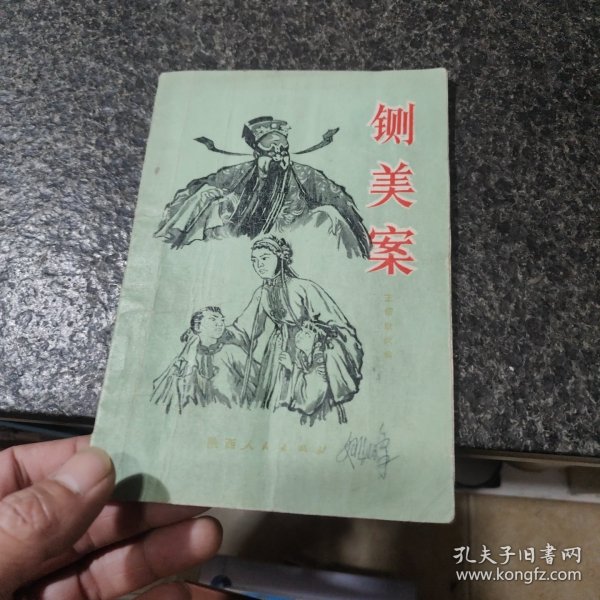 铡美案
陕西人民出版社
孔夫子旧书网
www.kongfz.com